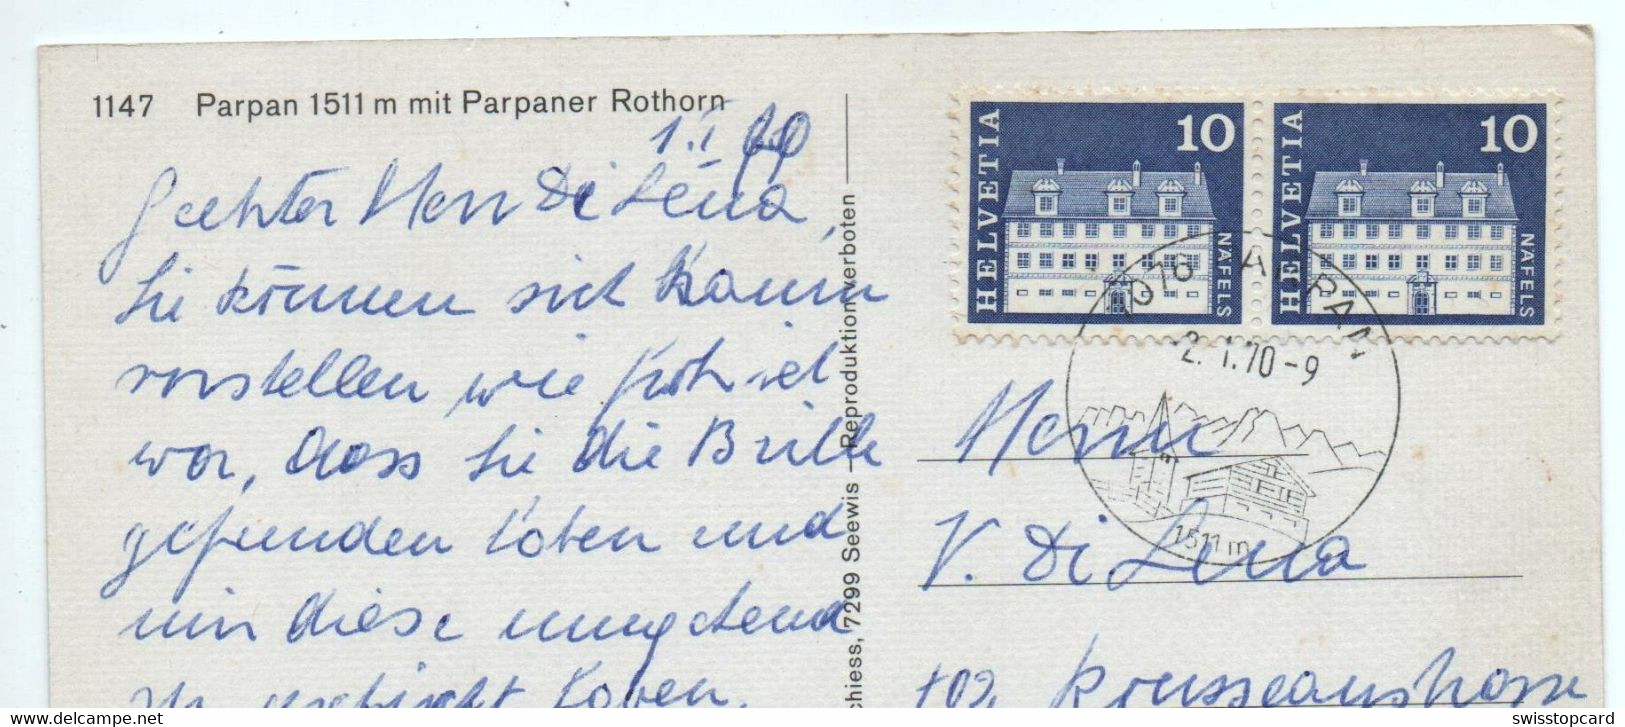 1147 Parpan 1511 m mit Parpaner Rothorn
1.I
Geehrter Herr Di Lena,
Sie können sich kaum
vorstellen wie froh ich
war, dass Sie die Brille
gefunden haben und
mir diese umgehend
zugeschickt haben.
chiess, 7299 Seewis — Reproduktion verboten
HELVETIA 10 NÄFELS
HELVETIA 10 NÄFELS
7076 PARPAN
-2.-1.70-9
1511 m
Herrn
V. Di Lena
102 Rousseaustrasse
swisstopcard